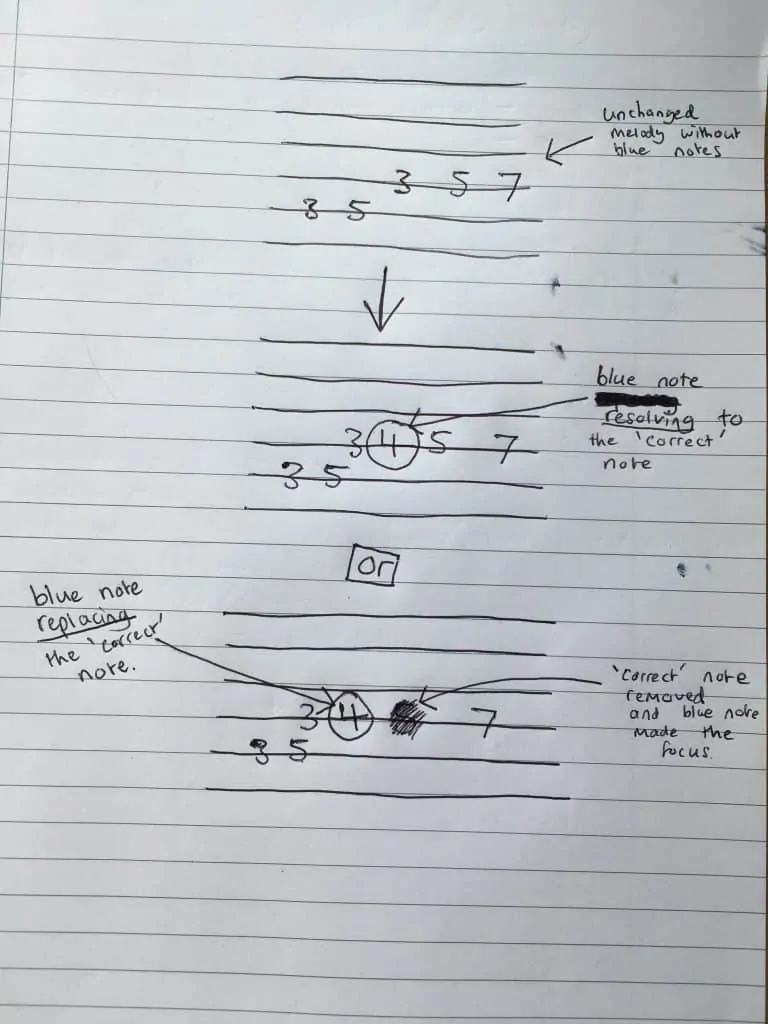 unchanged
melody without
blue notes
3 5 7
3 5
blue note
resolving to
the 'correct'
note
3 4 5 7
3 5
or
blue note
replacing
the 'correct'
note.
'correct' note
removed
and blue note
made the
focus.
3 4 7
3 5